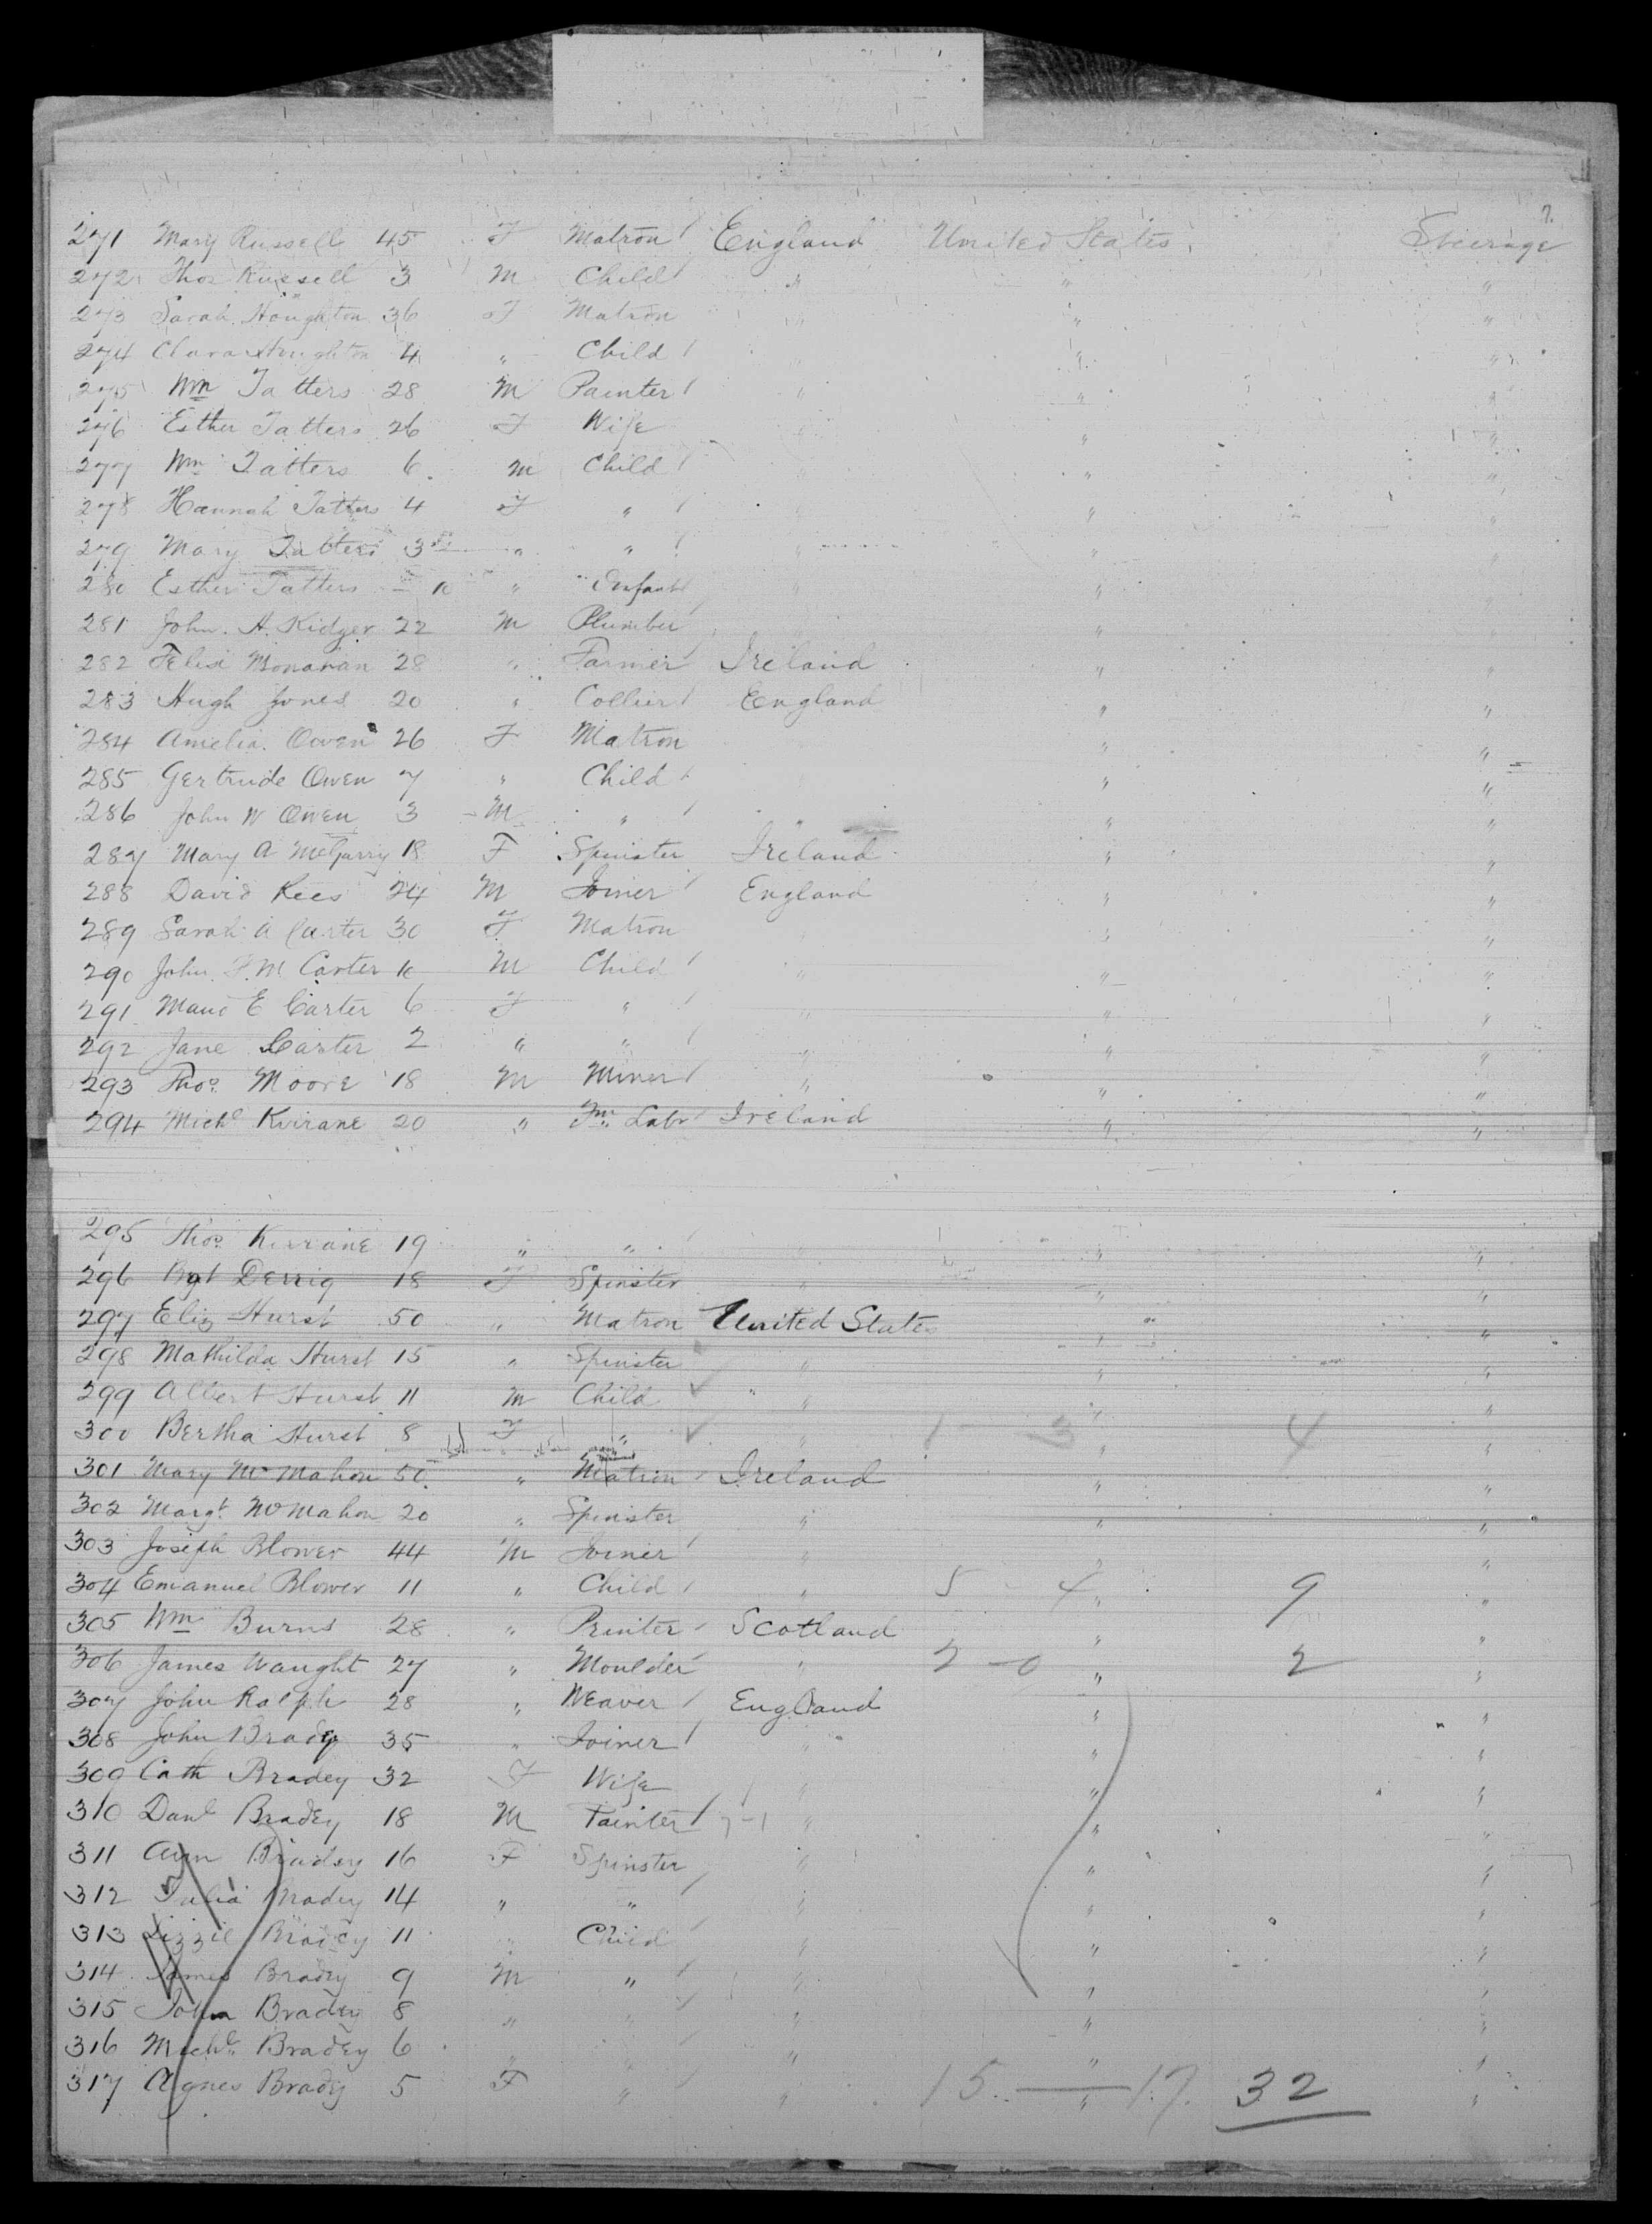 7.
271 Mary Russell 45 F Matron England United States. Steerage
272 Thos Russell 3 M Child " " "
273 Sarah Houghton 36 F Matron " " "
274 Clara Houghton 4 " Child " " "
275 Wm Tatters 28 M Painter " " "
276 Esther Tatters 26 F Wife " " "
277 Wm Tatters 6 M Child " " "
278 Hannah Tatters 4 F " " " "
279 Mary Tatters 3 " " " " "
280 Esther Tatters - 10 " Infant " " "
281 John. A. Kidger 22 M Plumber " "
282 Felix Monahan 28 " Farmer Ireland " "
283 Hugh Jones 20 " Collier England " "
284 Amelia. Owen 26 F Matron " "
285 Gertrude Owen 7 " Child " " "
286 John W Owen 3 M " " " "
287 Mary A McGarry 18 F Spinster Ireland " "
288 David Rees 24 M Joiner England " "
289 Sarah A Carter 30 F Matron " " "
290 John. F. M. Carter 10 M Child " " "
291 Maud E Carter 6 F " " " "
292 Jane Carter 2 " " " " "
293 Thos. Moore 18 M Miner " " "
294 Michl Kirrane 20 " Fm. Labr Ireland " "
295 Thos. Kirrane 19 " " " "
296 Bgt Derrig 18 F Spinster " " "
297 Eliz Hurst 50 " Matron United States "
298 Mathilda Hurst 15 " Spinster " " "
299 Albert Hurst 11 M Child " " "
300 Bertha Hurst 8 F " " 1 - 3 " 4 "
301 Mary McMahon 50 " Matron Ireland " "
302 Margt. McMahon 20 " Spinster " " "
303 Joseph Blower 44 M Joiner " " "
304 Emanuel Blower 11 " Child " 5 - 4 " 9 "
305 Wm Burns 28 " Printer Scotland " "
306 James Waught 27 " Moulder " 2 - 0 " 2 "
307 John Ralph 28 " Weaver England " "
308 John Brady 35 " Joiner " " "
309 Cath Bradey 32 F Wife " " "
310 Danl Bradey 18 M Painter 7-1 " " "
311 Ann Bradey 16 F Spinster " " "
312 Julia Bradey 14 " " " " "
313 Lizzie Bradey 11 " Child " " "
314. James Bradey 9 M " " " "
315 John Bradey 8 " " " " "
316 Michl. Bradey 6 " " " " "
317 Agnes Bradey 5 F " " 15 — " 17. 32 "